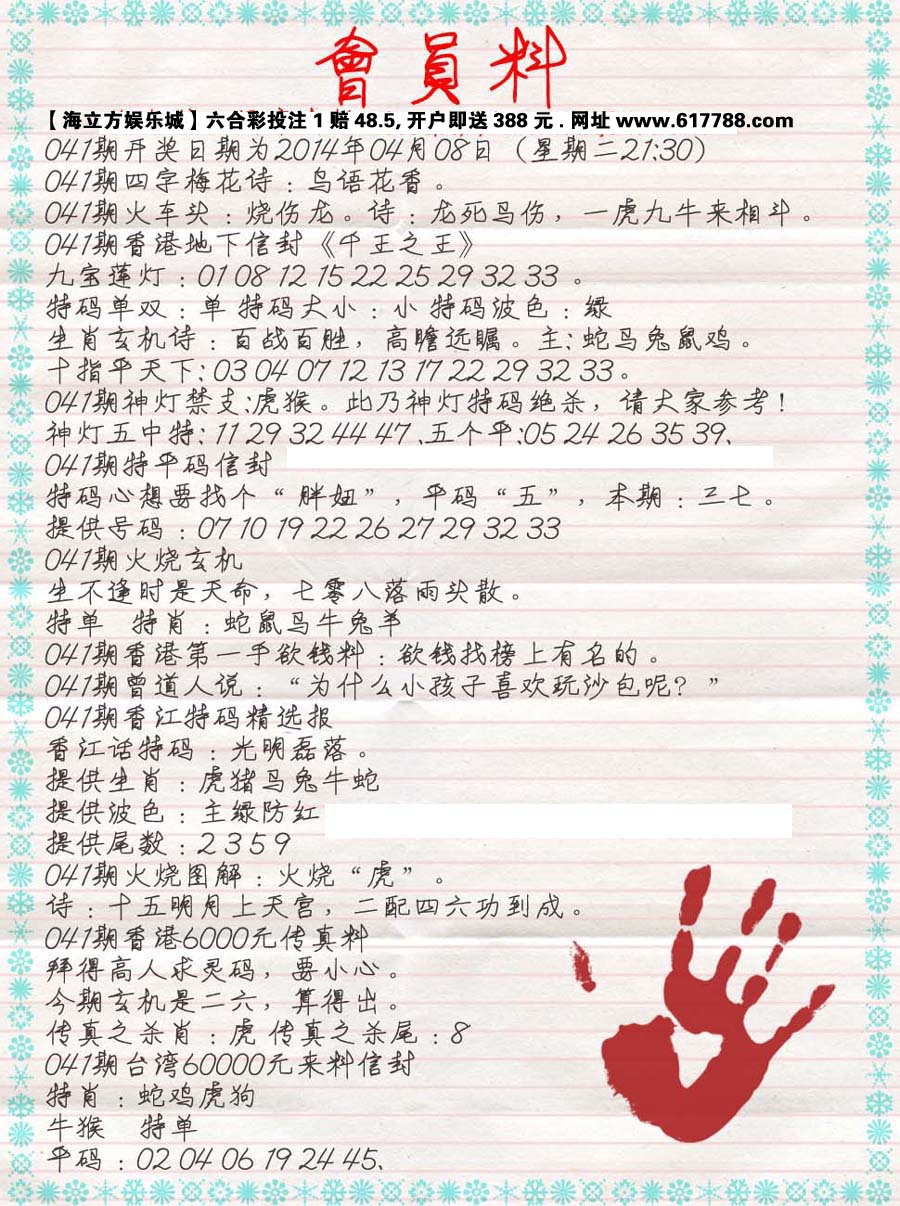 會員料
【海立方娱乐城】六合彩投注1赔48.5,开户即送388元.网址www.617788.com
041期开奖日期为2014年04月08日（星期二21:30）
041期四字梅花诗：鸟语花香。
041期火车头：烧伤龙。诗：龙死鸟伤，一虎九牛来相斗。
041期香港地下信封《千王之王》
九宝莲灯：01 08 12 15 22 25 29 32 33 。
特码单双：单 特码大小：小 特码波色：绿
生肖玄机诗：百战百胜，高瞻远瞩。主:蛇马兔鼠鸡。
十指平天下:03 04 07 12 13 17 22 29 32 33。
041期神灯禁支:虎猴。此乃神灯特码绝杀，请大家参考！
神灯五中特: 11 29 32 44 47 、五个平:05 24 26 35 39、
041期特平码信封
特码心想要找个“胖妞”，平码“五”，本期：三七。
提供号码：07 10 19 22 26 27 29 32 33
041期火烧玄机
生不逢时是天命，七零八落雨头散。
特单　特肖：蛇鼠马牛兔羊
041期香港第一手欲钱料：欲钱找榜上有名的。
041期曾道人说：“为什么小孩子喜欢玩沙包呢？”
041期香江特码精选报
香江话特码：光明磊落。
提供生肖：虎猪马兔牛蛇
提供波色：主绿防红
提供尾数：2 3 5 9
041期火烧图解：火烧“虎”。
诗：十五明月上天宫，二配四六功到成。
041期香港6000元传真料
拜得高人求灵码，要小心。
今期玄机是二六，算得出。
传真之杀肖：虎 传真之杀尾：8
041期台湾60000元来料信封
特肖：蛇鸡虎狗
牛猴　特单
平码：02 04 06 19 24 45、